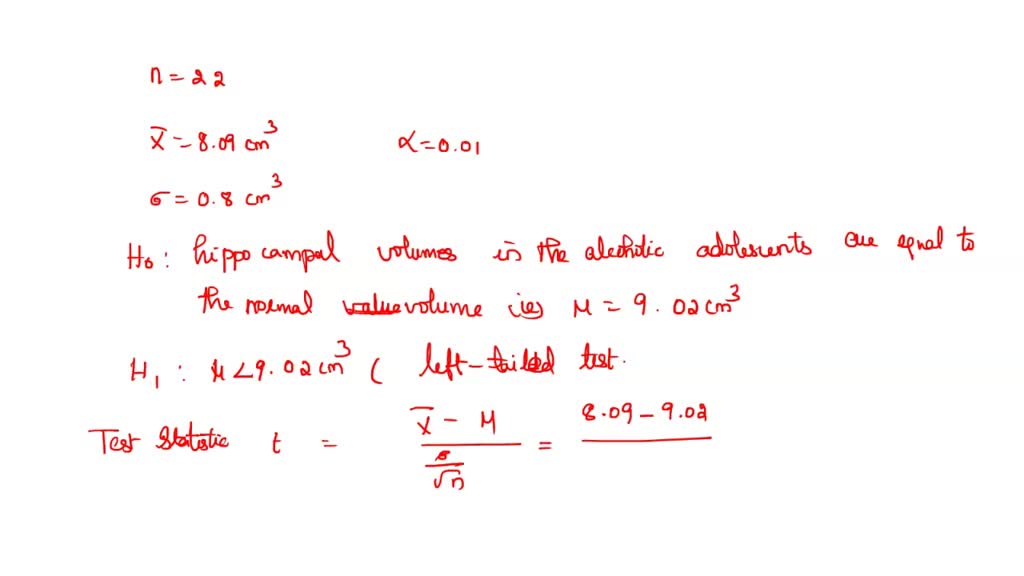 n = 22
x̄ = 8.09 cm³ α = 0.01
σ = 0.8 cm³
H₀ : hippo campal volumes in the alcoholic adolescents are equal to
the normal value volume i.e., μ = 9.02 cm³
H₁ : μ < 9.02 cm³ ( left-tailed test.
Test Statistic t = (x̄ - μ) / (σ/√n) = 8.09 - 9.02